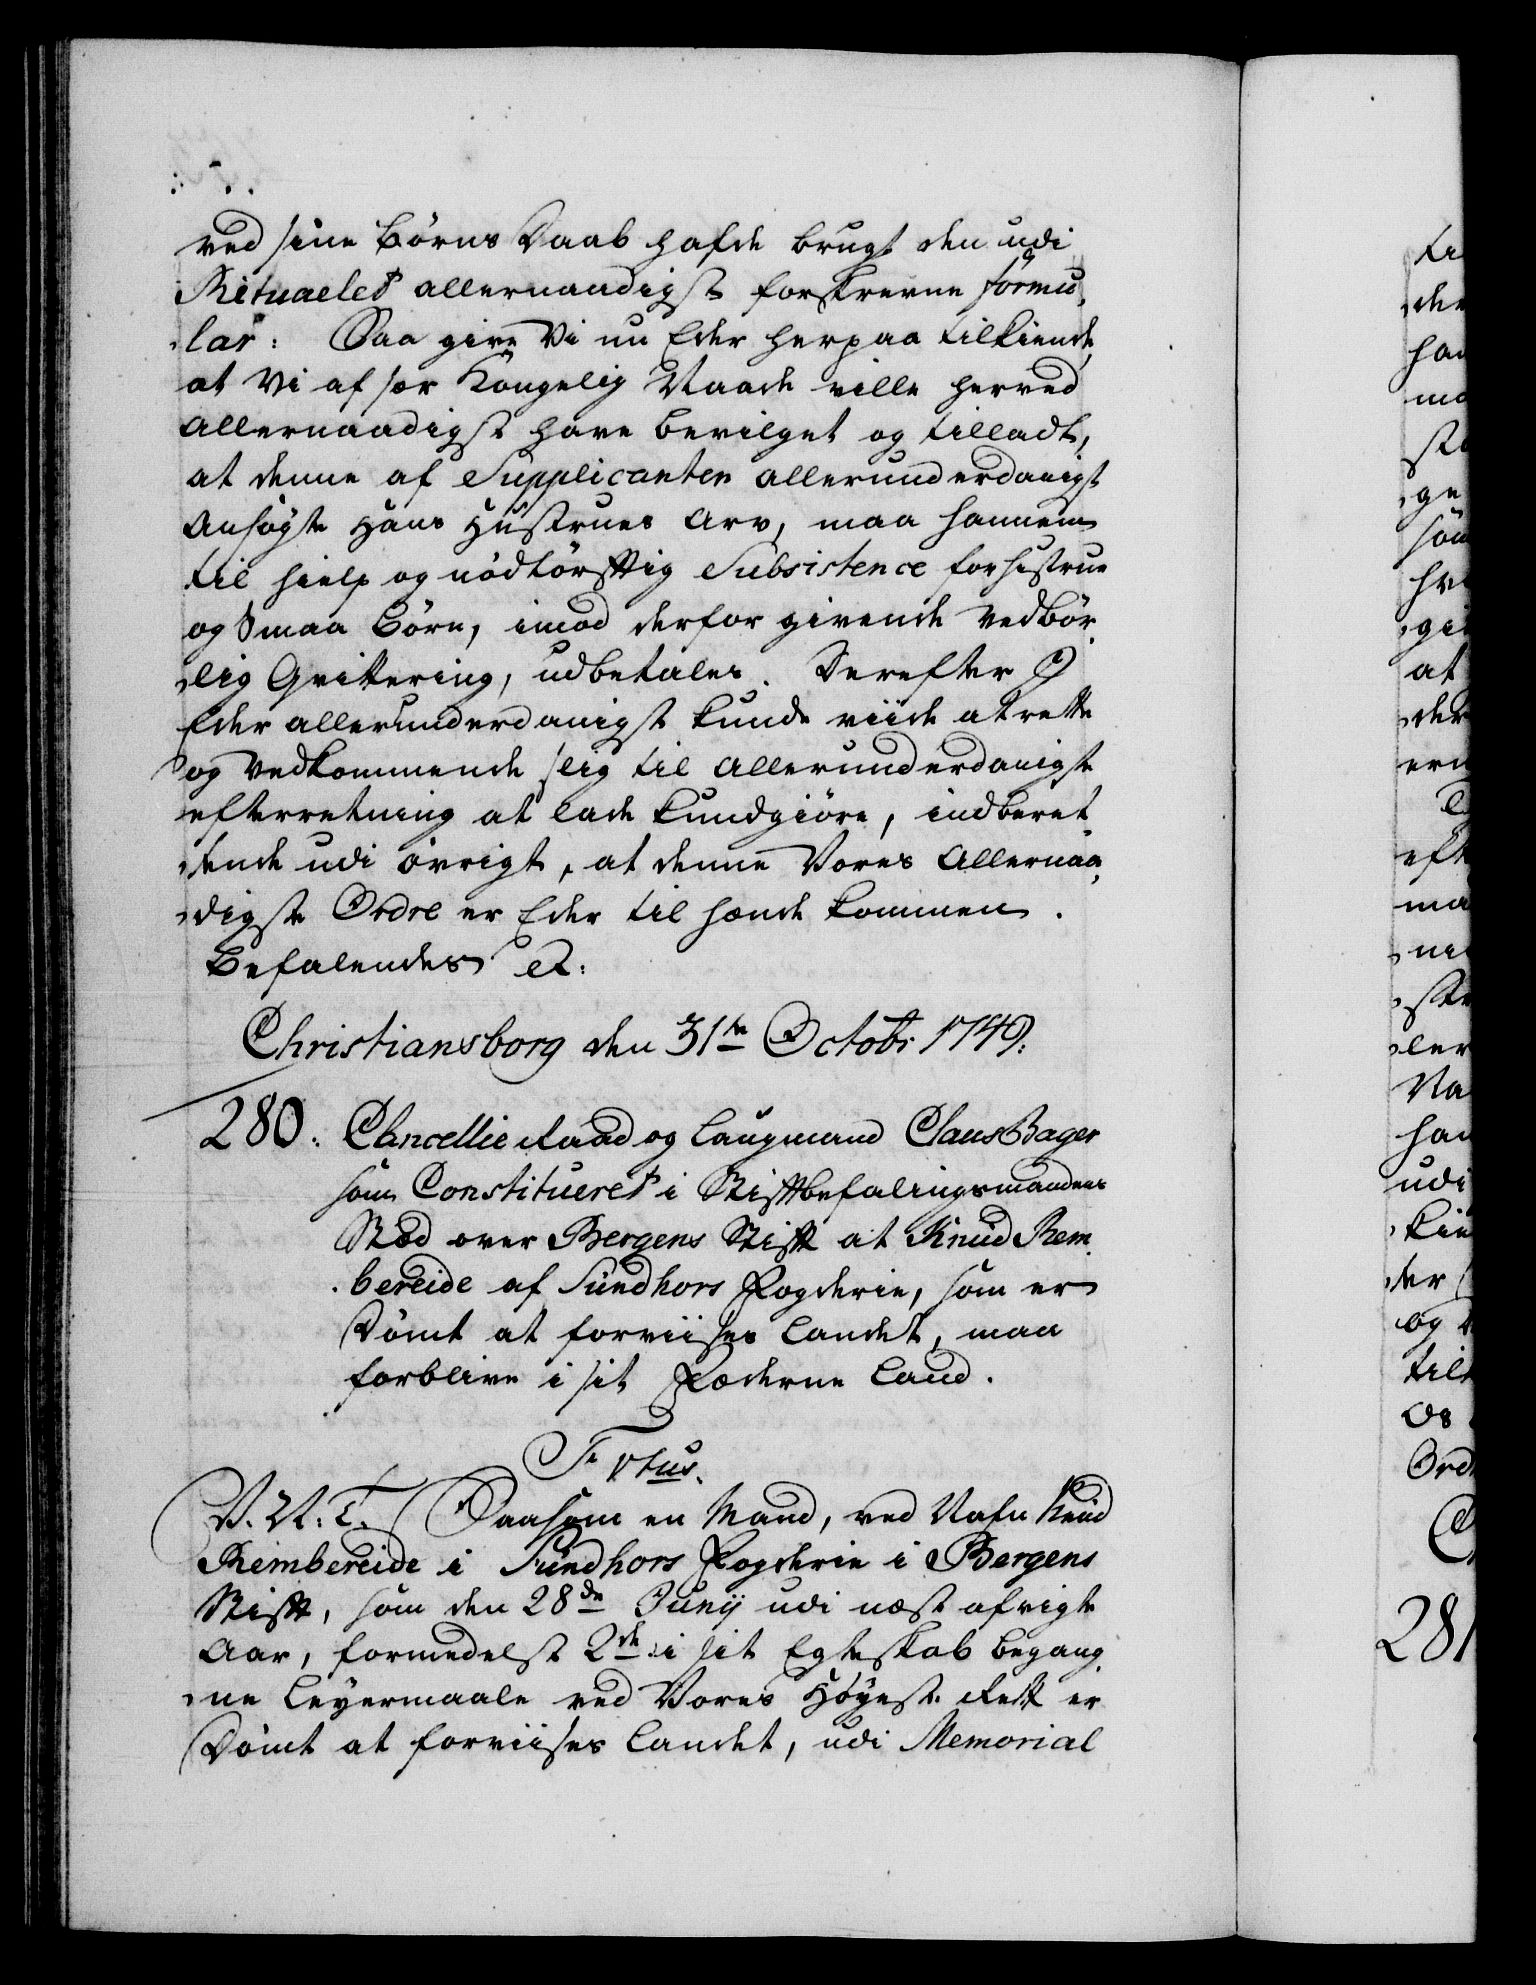 ved sine Børns Daab hafde brugt den udi
Ritualet allernaadigst forskrevne formu
lar: Saa give Vi nu Eder herpaa tilkiende,
at Vi af sær Kongelig Naade ville herved
allernaadigst have bevilget og tilladt,
at denne af Supplicanten allerunderdanigst
ansøgte Hans Hustrues Arv, maa hannem
til hielp og nødtørfftig Subsistence for hustrue
og Smaa Børn, imod derfor givende Vedbør
lig Qvittering, udbetales. Derefter I
Eder allerunderdanigst kunde viide at rette
og Vedkommende slig til allerunderdanigste
efterretning at lade kundgiøre, indberet
tende udi øvrigt, at denne Vores Allernaa
digste Ordre er Eder til hænde kommen.
Befalendes etc:
Christiansborg den 31te Octobr 1749:
280: Cancellie Raad og Laugmand Claus Bager
som Constitueret i Stiftbefalingsmandens
Stæd over Bergens Stift at Knud Rem
bereide af Sundhors Fogderie, som er
Dømt at forviises Landet, maa
forblive i sit Fæderne Land.
Textus.
V. A. T. Saasom en Mand, ved Nafn Knud
Rembereide i Sundhors Fogderie i Bergens
Stift, som den 28de Junij udi næst afvigte
Aar, formedelst 2de i sit Egteskab begang
ne Leyermaale ved Vores Høyeste Rett er
Dømt at forviises Landet, udi Memorial
281